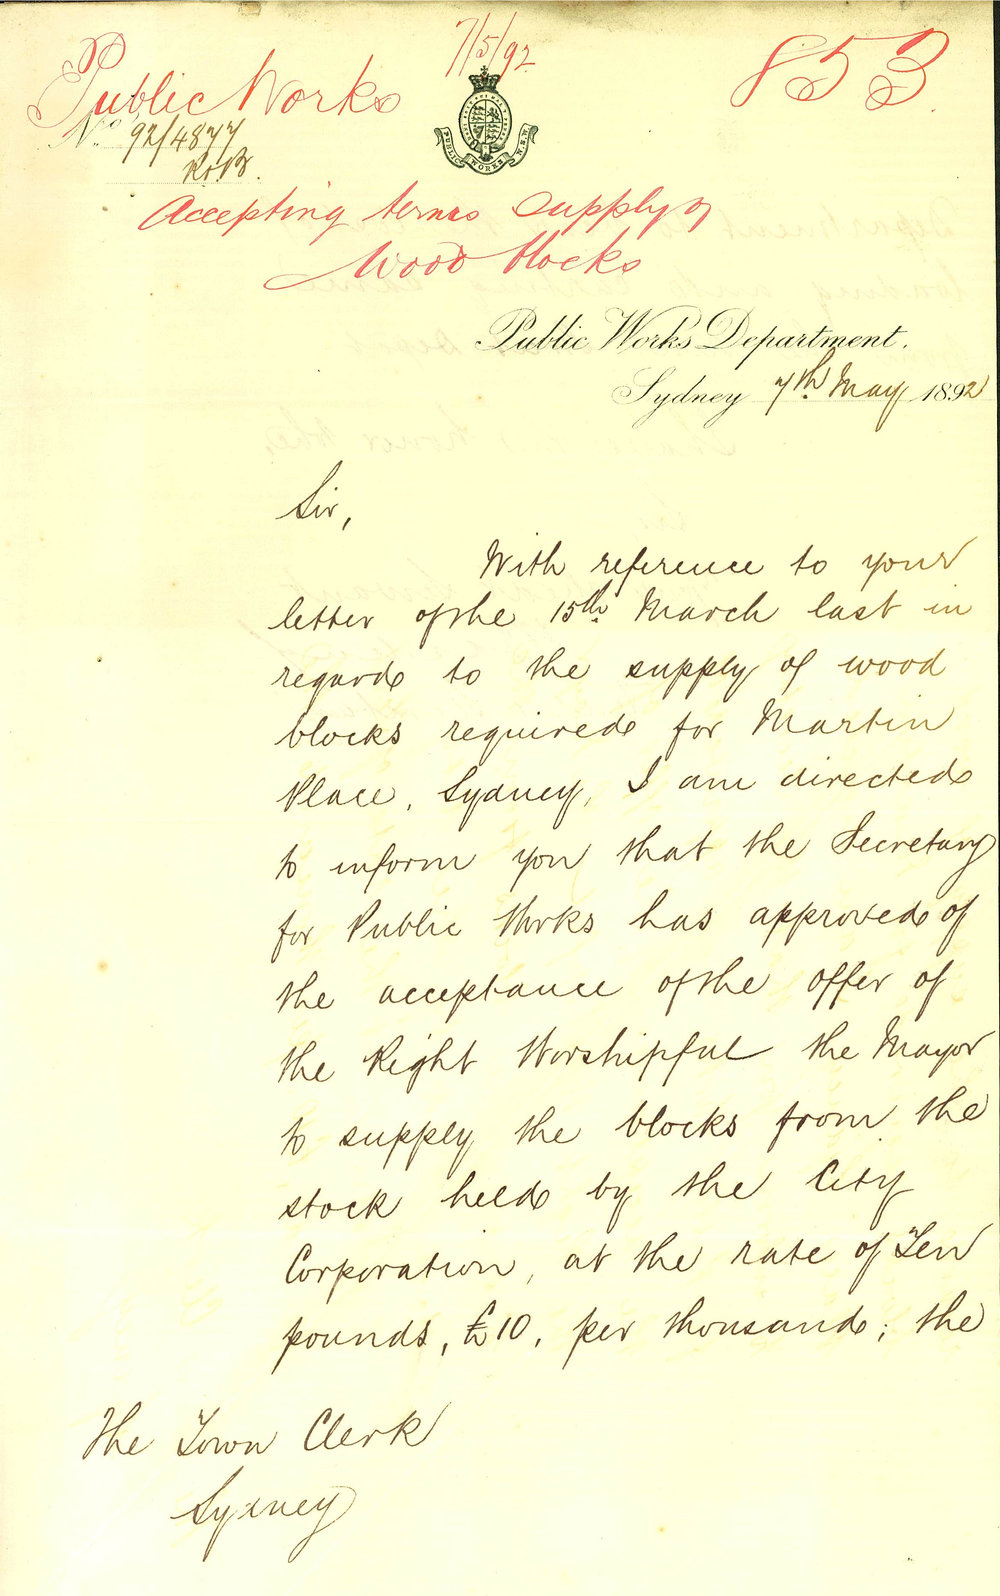 7/5/92
853
Public Works
No. 92/4877
R.o'B.
PUBLIC WORKS N.S.W.
Accepting terms supply of
Wood blocks
Public Works Department.
Sydney 7th May 1892
Sir,
With reference to your
letter of the 15th March last in
regard to the supply of wood
blocks required for Martin
Place, Sydney, I am directed
to inform you that the Secretary
for Public Works has approved of
the acceptance of the offer of
the Right Worshipful the Mayor
to supply the blocks from the
stock held by the City
Corporation, at the rate of Ten
pounds, £10, per thousand; the
The Town Clerk
Sydney